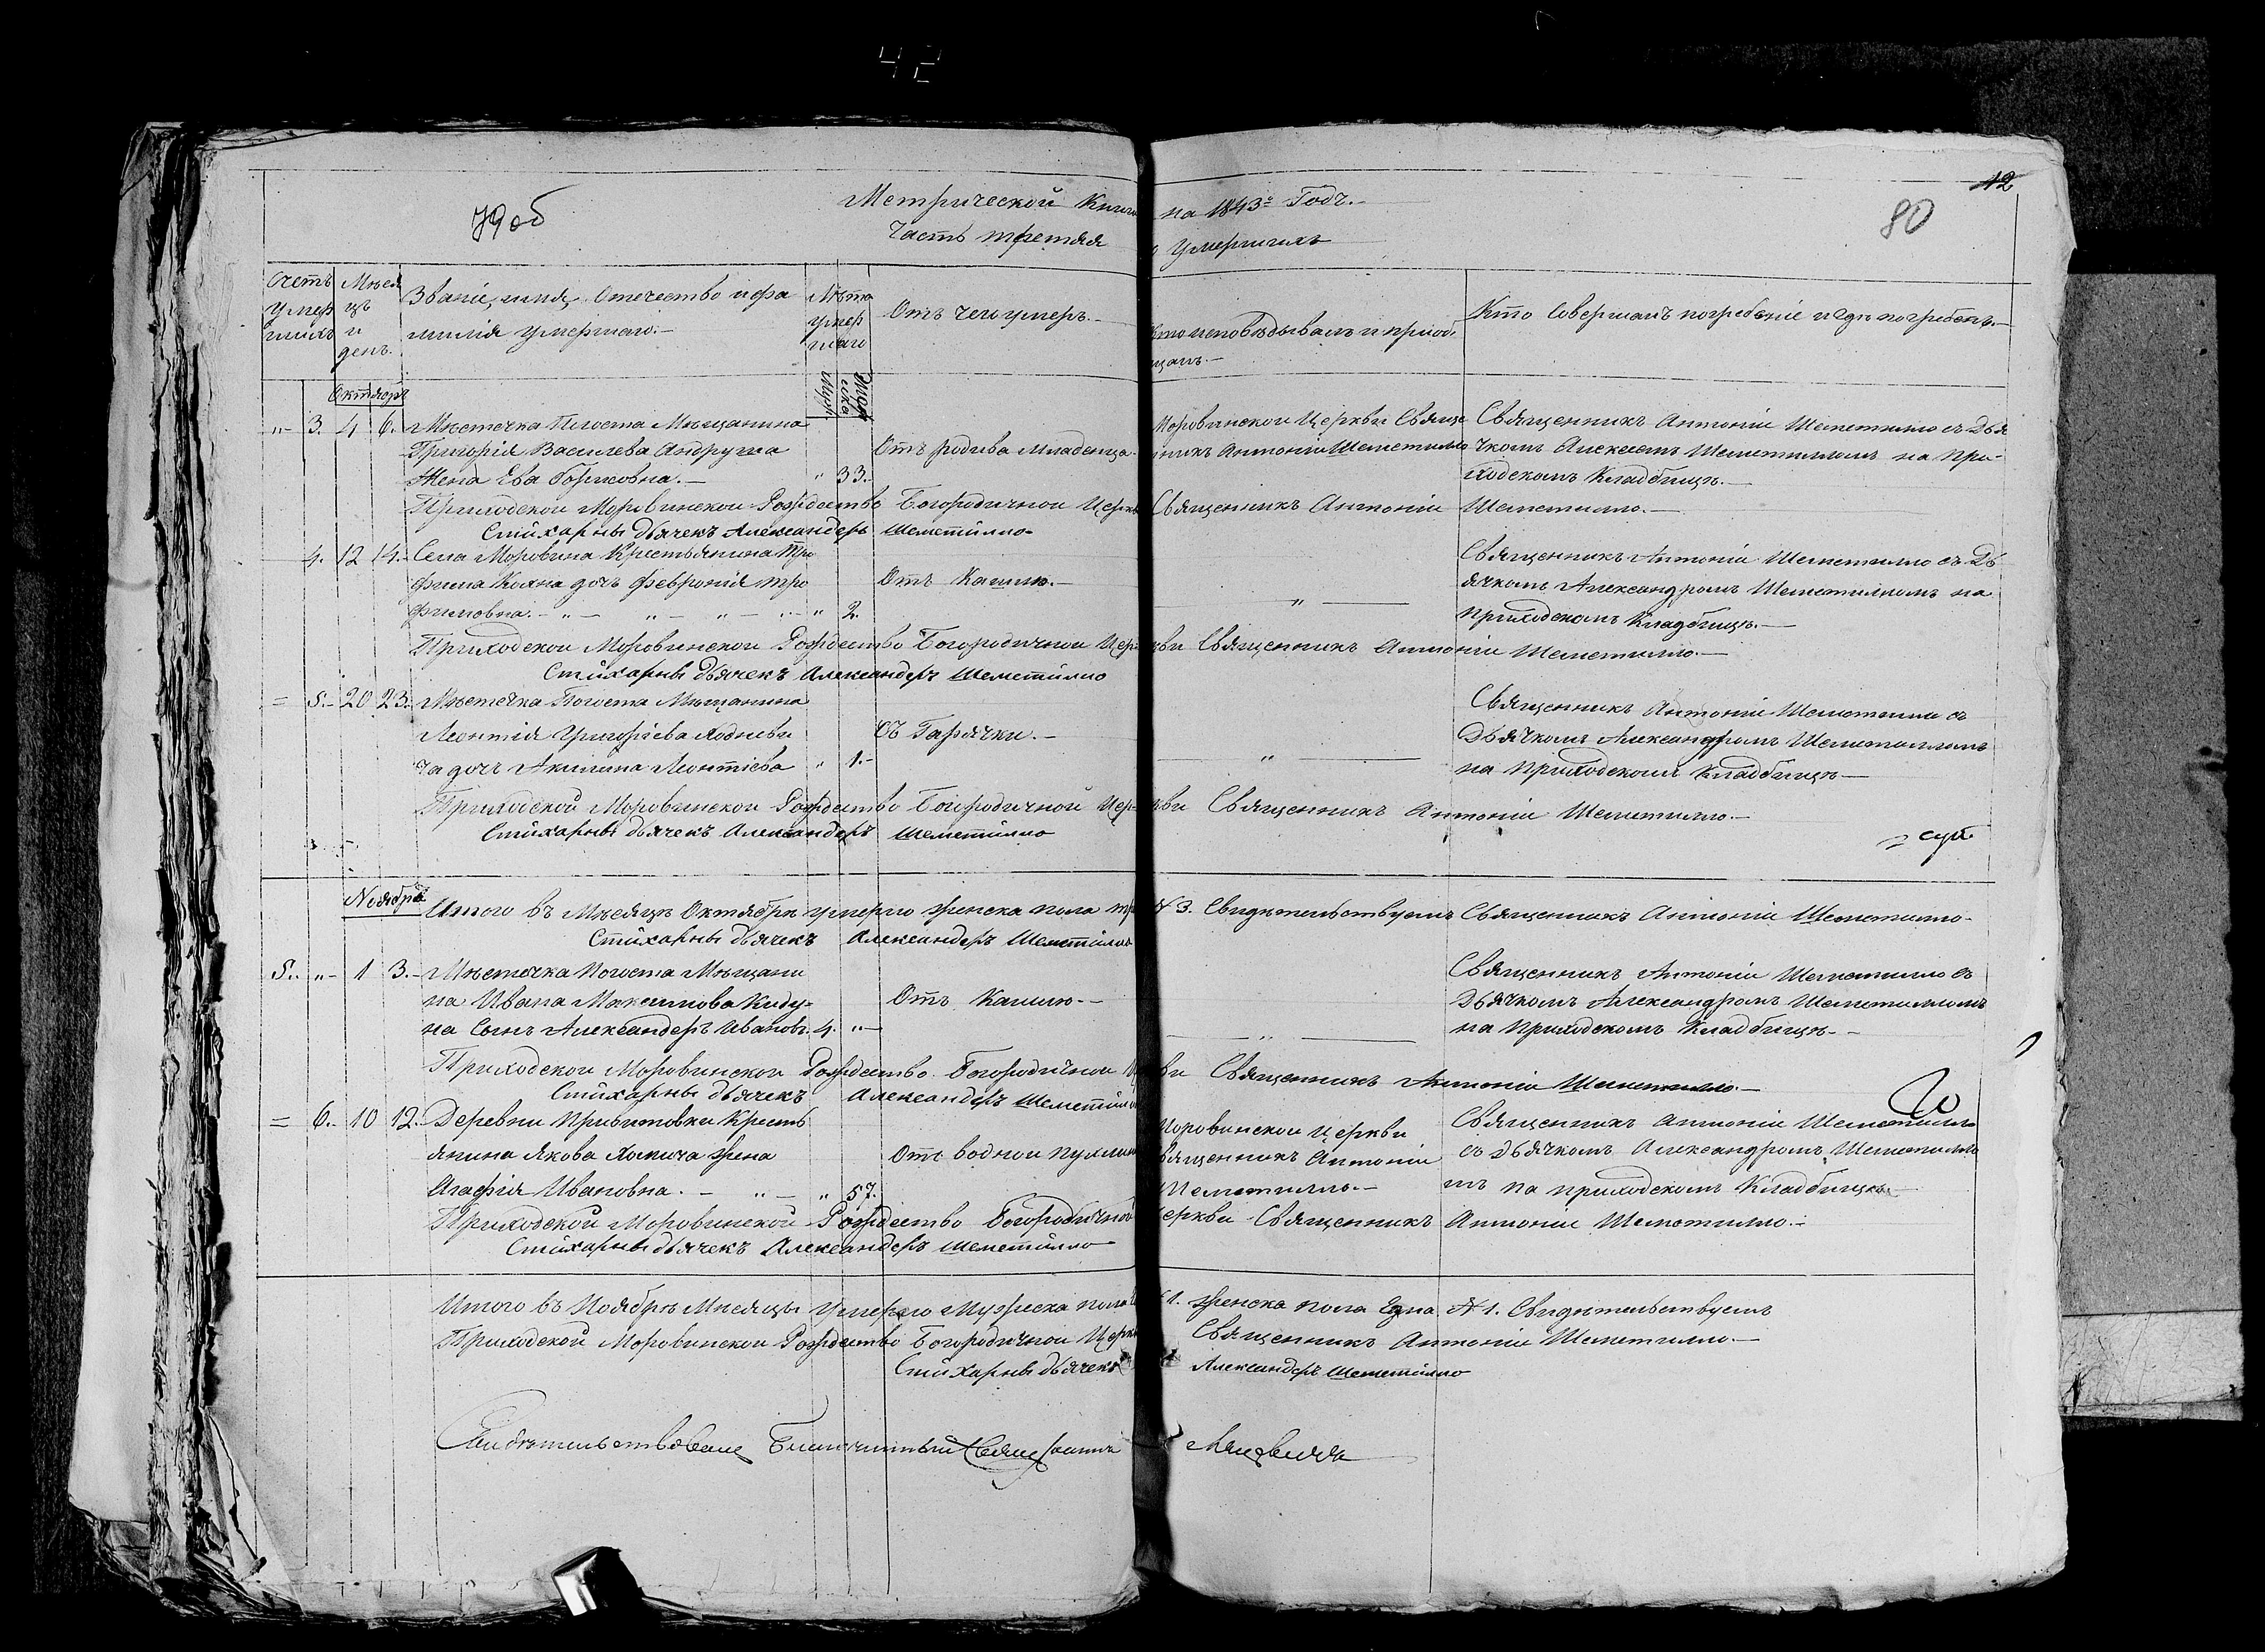 42
12
79об
80
Метрической Книги на 1843º Годъ.
Часть третяя о Умершихъ
Счетъ Умершихъ
Мѣсяцъ и день.
Званіе, имя, Отечество и фамилія Умершаго.
Лѣта умершаго
Муж
Женска
Отъ чего умеръ.
Кто исповѣдывалъ и приобщалъ.
Кто Совершалъ погребеніе и гдѣ погребенъ.
Октября
" 3. 4 6. Мѣстечка Погоста Мѣщанина
Григорія Василева Андруша
Жена Ева Борисовна. " 33.
Отъ родива младенца.
Моровинской Церкви Свяще
нникъ Антоній Шеметилло
Священникъ Антоній Шеметилло съ Дья
чкомъ Алексамъ Шеметилломъ на При-
ходскомъ Кладбищѣ.
Приходской Моровинской Рождество Богородичной Церкви Священникъ Антоній Шеметилло.
Стихарны дьячекъ Александеръ Шеметилло
4. 12 14. Села Моровина Крестьянина Тро
фима Кояна дочъ Февронія Тро
фимовна. " 2.
Отъ Кашлю.
"
Священникъ Антоній Шеметилло съ Дь
ячкомъ Александромъ Шеметилломъ на
Приходскомъ Кладбищѣ.
Приходской Моровинской Рождество Богородичной Церкви Священникъ Антоній Шеметилло.
Стихарны дьячекъ Александеръ Шеметилло
= 5. 20 23. Мѣстечка Погоста Мѣщанина
Леонтія Григоріева Ходневи
ча дочъ Акилина Леонтіева " 1.
Съ Гарячки.
"
Священникъ Антоній Шеметилло съ
Дьячкомъ Александромъ Шеметилломъ
на Приходскомъ Кладбищѣ
Приходской Моровинской Рождество Богородичной Церкви Священникъ Антоній Шеметилло.
Стихарны дьячекъ Александеръ Шеметилло
Ноября
Итого въ Мѣсяцѣ Октябрѣ умерло женска пола три № 3. Свидѣтельствуемъ Священникъ Антоній Шеметилло.
Стихарны дьячекъ Александеръ Шеметилло
5. " 1 3. Мѣстечка Погоста Мѣщани
на Ивана Максимова Киду-
на Сынъ Александеръ Ивановъ. 4. "
Отъ Кашлю.
"
Священникъ Антоній Шеметилло съ
Дьячкомъ Александромъ Шеметилломъ
на Приходскомъ Кладбищѣ
Приходской Моровинской Рождество Богородичной Церкви Священникъ Антоній Шеметилло.
Стихарны дьячекъ Александеръ Шеметилло
= 6. 10 12. Деревни Привитовки Кресть
янина Якова Хомича жена
Агафія Ивановна. " 57.
Отъ водной пухлины
Моровинской Церкви
Священникъ Антоній
Шеметилло.
Священникъ Антоній Шеметилло
съ дьячкомъ Александромъ Шеметилло
мъ на приходскомъ Кладбищѣ
Приходской Моровинской Рождество Богородичной Церкви Священникъ Антоній Шеметилло.
Стихарны дьячекъ Александеръ Шеметилло
Итого въ Ноябрѣ Мѣсяцы умерло Мужеска пола 1. женска пола Една № 1. Свидѣтельствуемъ
Приходской Моровинской Рождество Богородичной Церкви Священникъ Антоній Шеметилло.
Стихарны дьячекъ Александеръ Шеметилло
Свидѣтельствовалъ Благочинный Священникъ